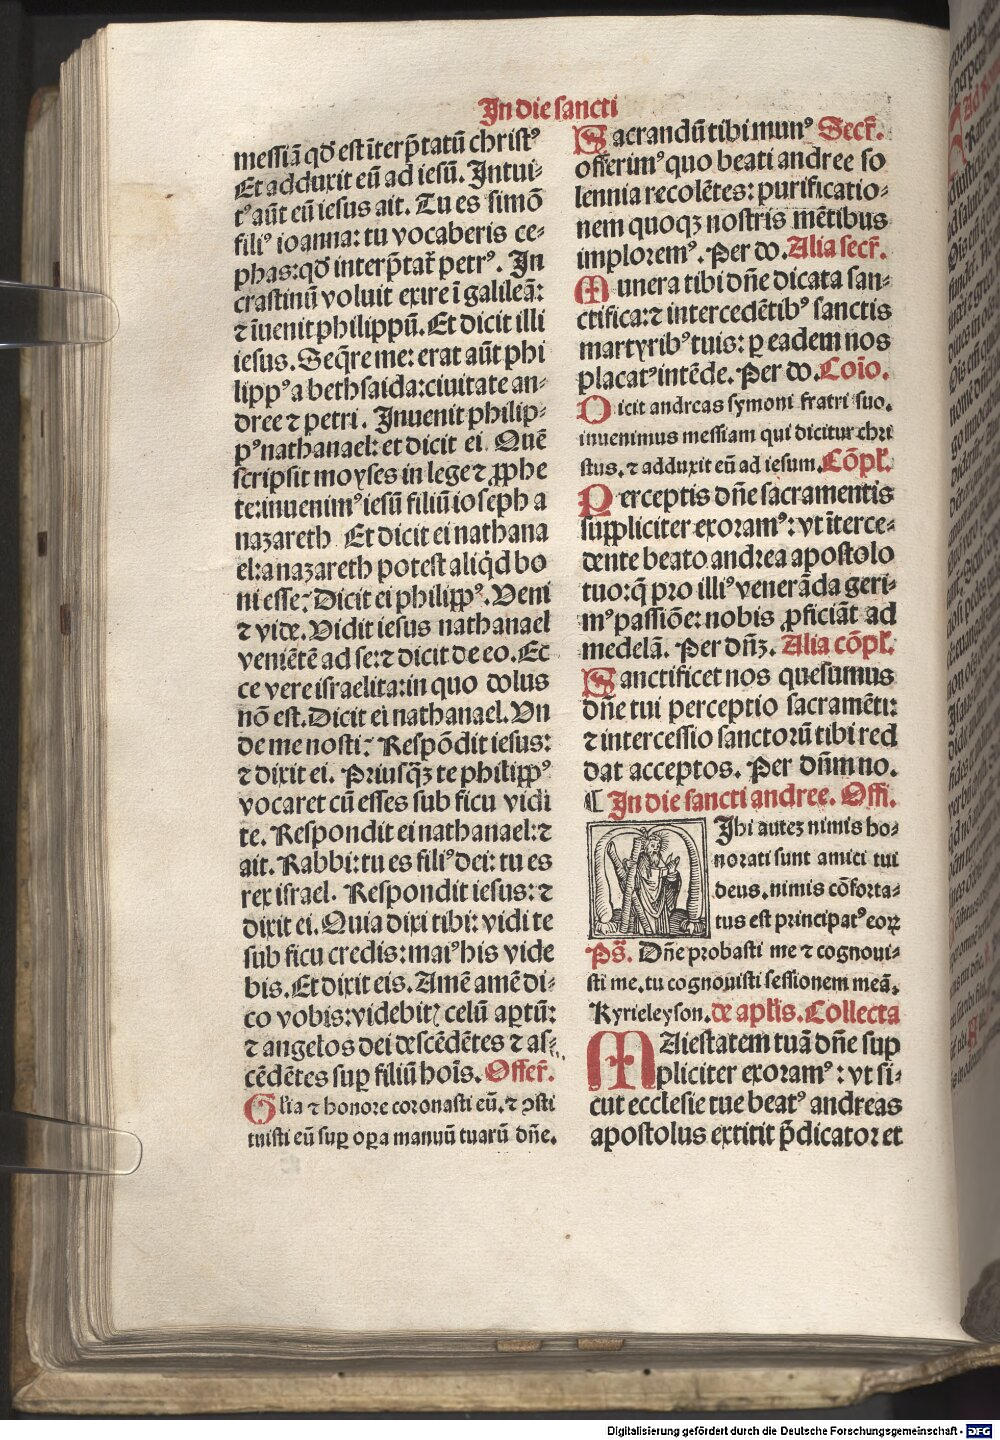 In die sancti
messiā qď est īterp̄tatū christꝰ
Et adduxit eū ad iesū. Intui-
tꝰ aūt eū iesus ait. Tu es simō
filiꝰ ioanna: tu vocaberis ce-
phas: qď interp̄tat᷑ petrꝰ. In
crastinū voluit exire ī galileā:
⁊ īuenit philippū. Et dicit illi
iesus. Seq̄re me: erat aūt phi
lippꝰ a bethsaida: ciuitate an-
dree ⁊ petri. Inuenit philip-
pꝰ nathanael: et dicit ei. Quē
scripsit moyses in lege ⁊ ꝓphe
te: inuenimꝰ iesū filiū ioseph a
nazareth Et dicit ei nathana
el: a nazareth potest aliq̇d bo
ni esse? Dicit ei philippꝰ. Veni
⁊ vide. Vidit iesus nathanael
veniētē ad se: ⁊ dicit de eo. Ec
ce vere israelita: in quo dolus
nō est. Dicit ei nathanael. Vn
de me nosti? Respōdit iesus:
⁊ dixit ei. Priusq̄ꝫ te philippꝰ
vocaret cū esses sub ficu vidi
te. Respondit ei nathanael: ⁊
ait. Rabbi: tu es filiꝰ dei: tu es
rex israel. Respondit iesus: ⁊
dixit ei. Quia dixi tibi: vidi te
sub ficu credis: maiꝰ his vide
bis. Et dixit eis. Amē amē di-
co vobis: videbitꝭ celū aꝑtū:
⁊ angelos dei descēdētes ⁊ as-
cēdētes suꝑ filiū hoīs. Offer᷑.
Glīa ⁊ honore coronasti eū. ⁊ ꝯsti
tuisti eū suꝑ oꝑa manuū tuarū dn̄e.
Sacrandū tibi munꝰ Secr᷑.
offerimꝰ quo beati andree so
lennia recolētes: purificatio-
nem quoqꝫ nostris mētibus
imploremꝰ. Per do. Alia secr᷑.
Munera tibi dn̄e dicata san-
ctifica: ⁊ intercedētibꝰ sanctis
martyribꝰ tuis: ꝑ eadem nos
placatꝰ intēde. Per do. Coīo.
Dicit andreas symoni fratri suo.
inuenimus messiam qui dicitur chri
stus. ⁊ adduxit eū ad iesum. Cōpl᷑.
Perceptis dn̄e sacramentis
suppliciter exoramꝰ: vt īterce-
dente beato andrea apostolo
tuo: q̄ pro illiꝰ venerāda geri-
mꝰ passiōe: nobis ꝓficiāt ad
medelā. Per dn̄ꝫ. Alia cōpl᷑.
Sanctificet nos quesumus
dn̄e tui perceptio sacramēti:
⁊ intercessio sanctorū tibi red
dat acceptos. Per dn̄m no.
¶ In die sancti andree. Offi.
Ihi auteꝫ nimis ho-
norati sunt amici tui
deus. nimis cōforta-
tus est principatꝰ eoꝝ
Ps̄. Dn̄e probasti me ⁊ cognoui-
sti me. tu cognouisti sessionem meā.
Kyrieleyson. de apl̄is. Collecta
Maiestatem tuā dn̄e sup
pliciter exoramꝰ: vt si-
cut ecclesie tue beatꝰ andreas
apostolus extitit p̄dicator et
Digitalisierung gefördert durch die Deutsche Forschungsgemeinschaft - DFG